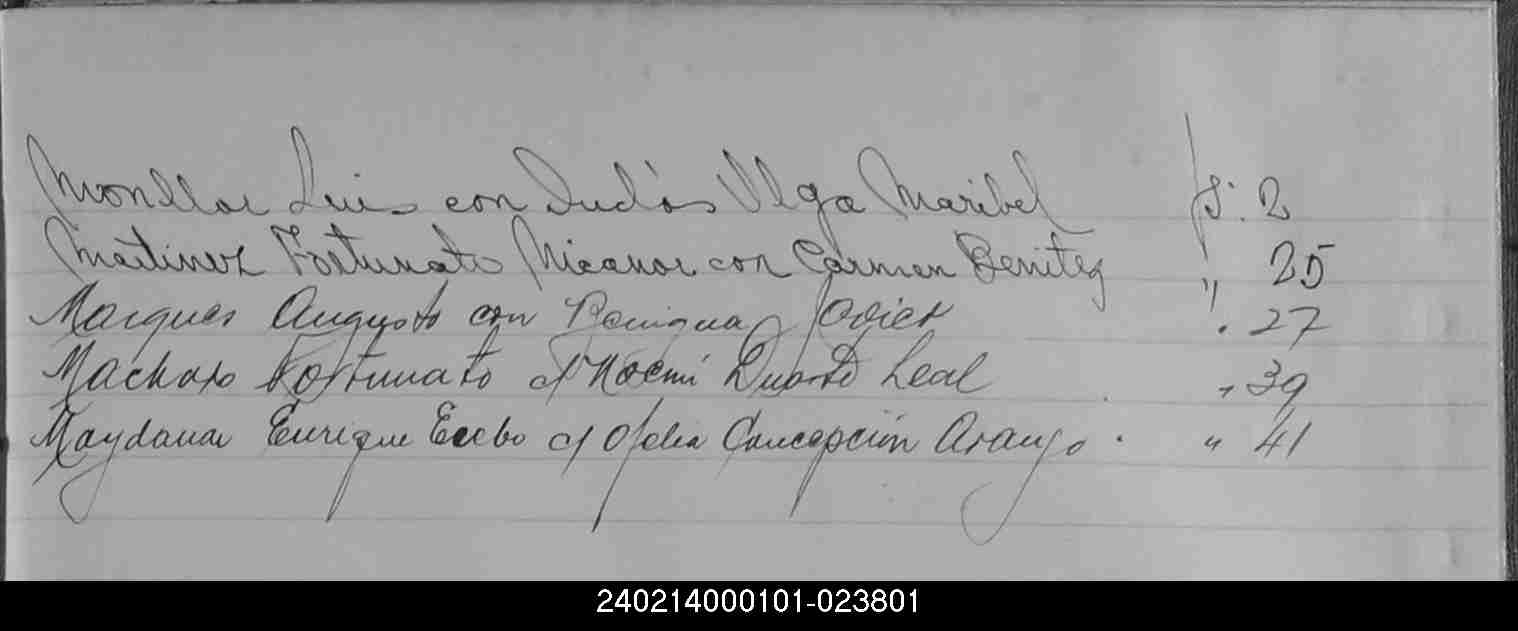 Monllor Luis con Olga Maribel fs. 2
Martinez Fortunato Nicanor con Carmen Benitez " 25
Marques Augusto con Benigna . 27
Machado Fortunato c/ Noemi Duarte Leal " 39
Maydana Enrique c/ Ofelia Concepción Araujo . " 41
240214000101-023801